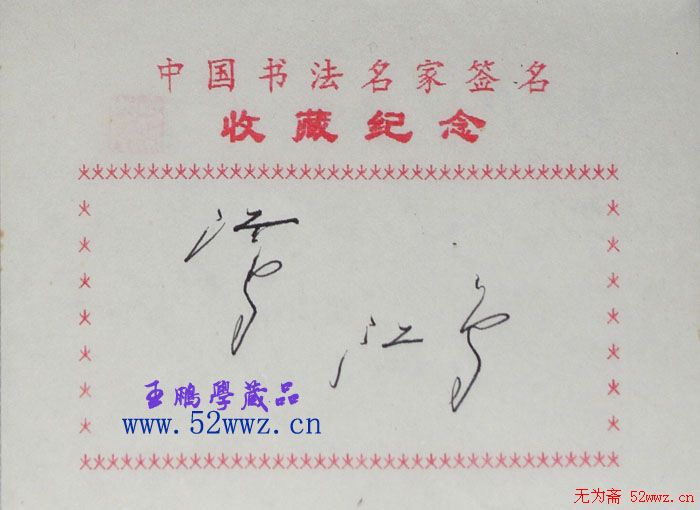 中国书法名家签名
收藏纪念
江鸟
王鹏學藏品
www.52wwz.cn
无为斋 52wwz.cn